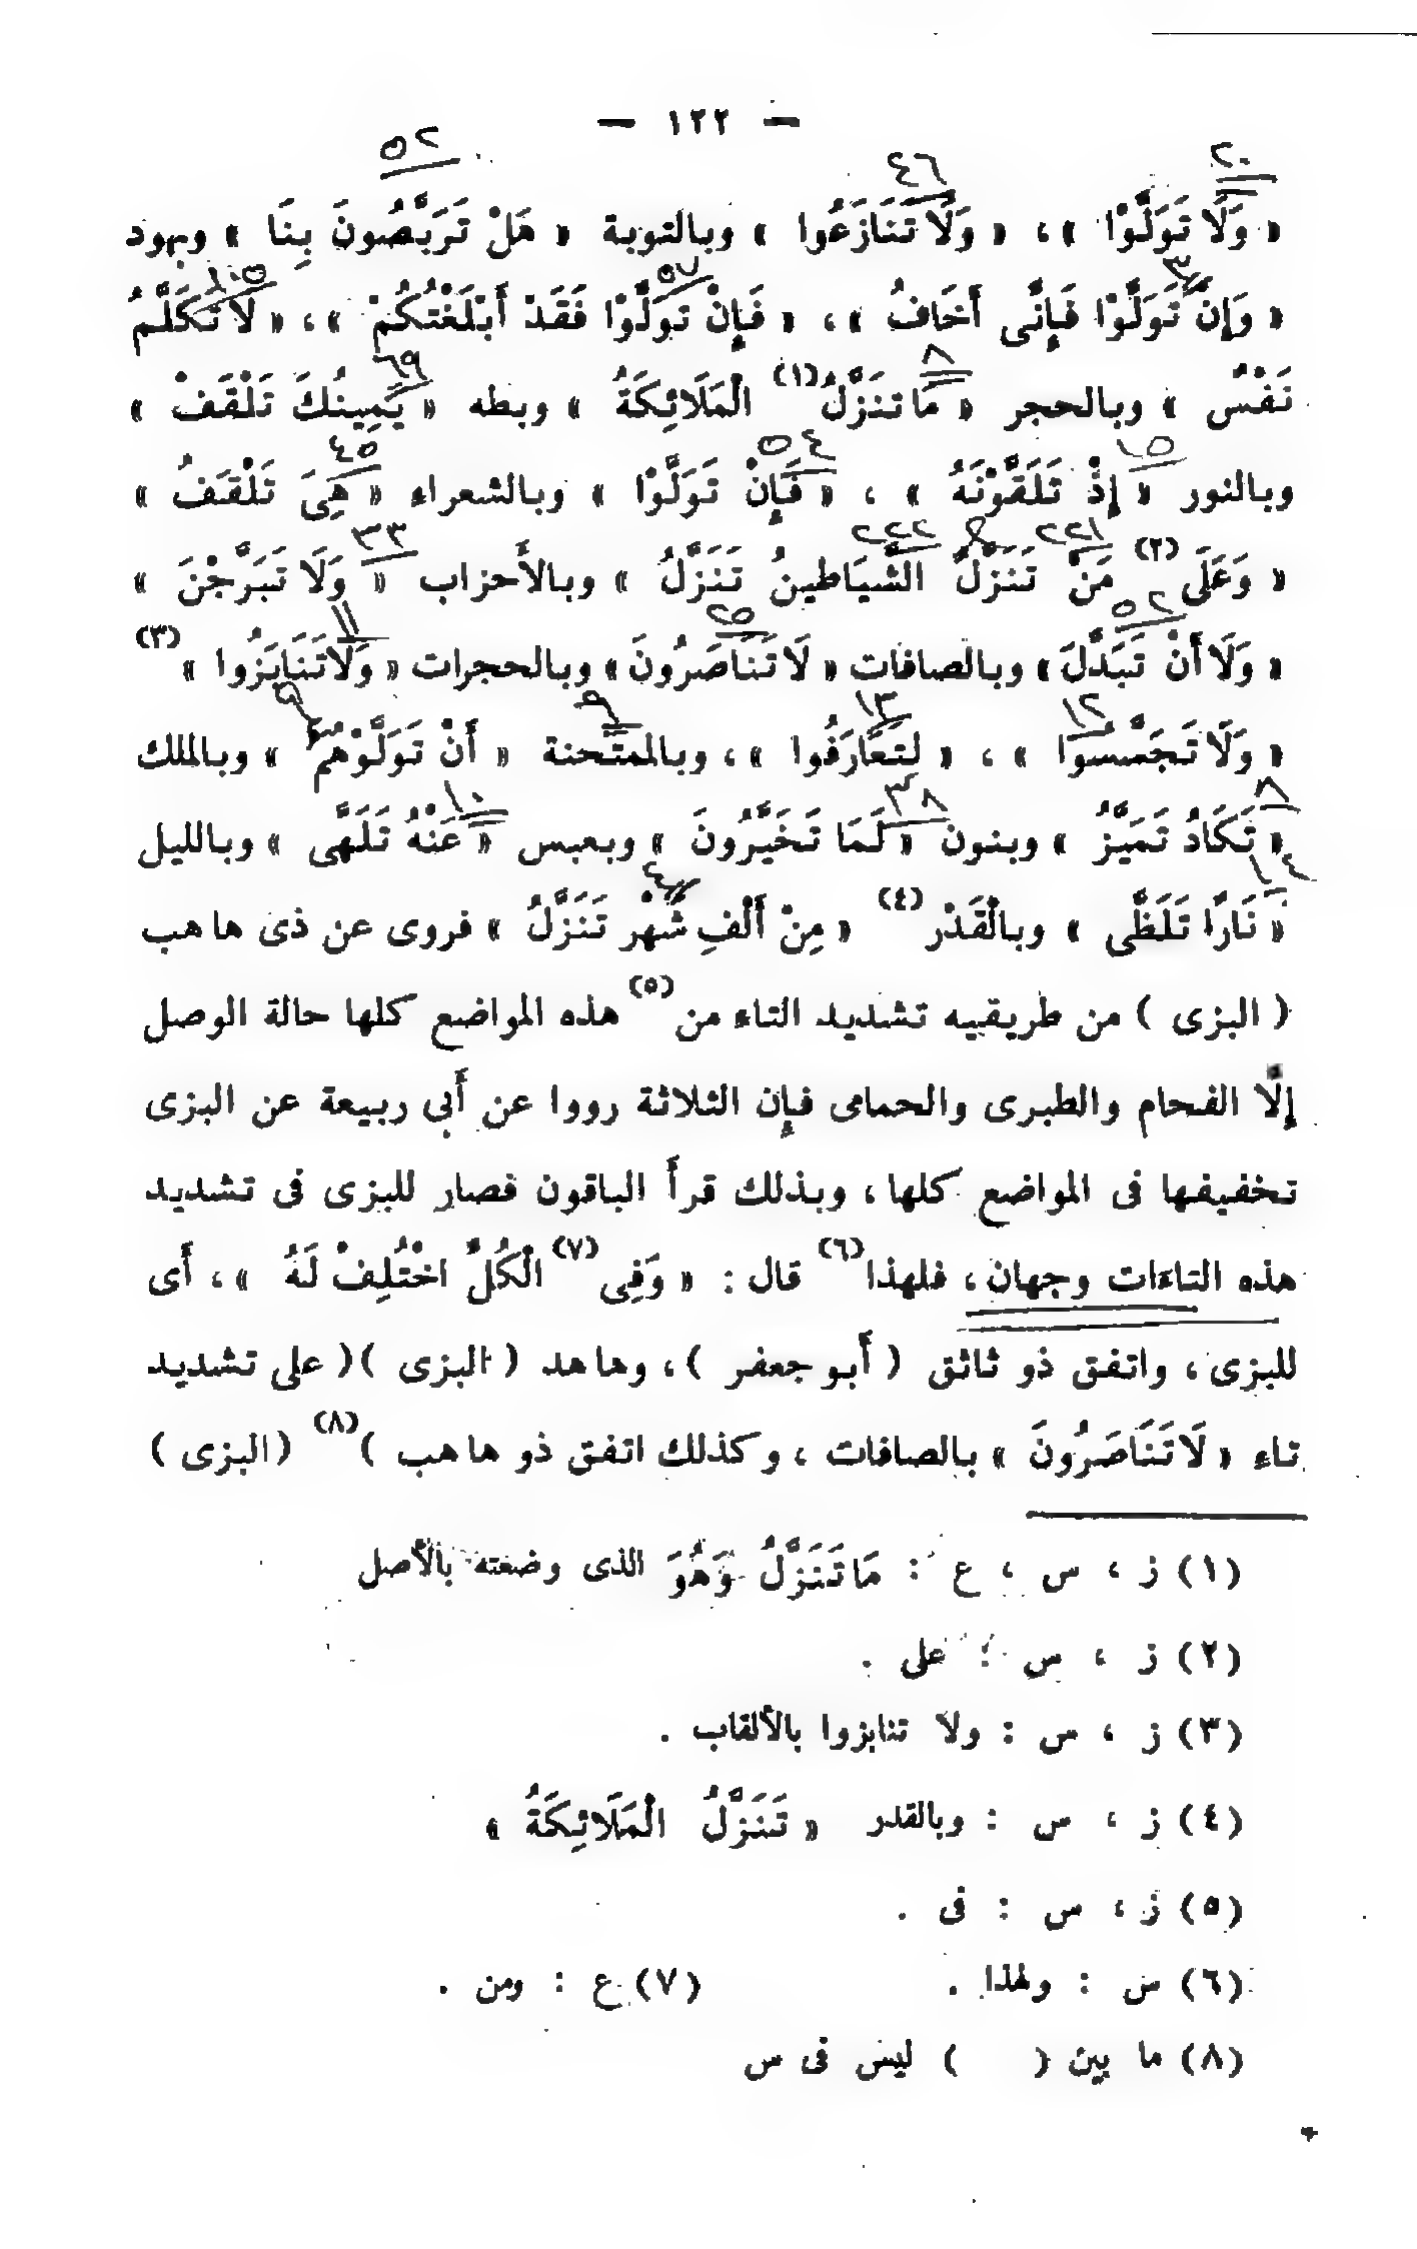 — ١٢٢ —
٢٠ ٤٦ ٥٢
« وَلَا تَوَلَّوْا » ، « وَلَا تَنَازَعُوا » وبالتوبة « هَلْ تَرَبَّصُونَ بِنَا » وبهود
٣ ٥٧ ١٠٥
« وَإِنْ تَوَلَّوْا فَإِنِّى أَخَافُ » ، « فَإِنْ تَوَلَّوْا فَقَدْ أَبْلَغْتُكُمْ » ، « لَا تَكَلَّمُ
٨ ٦٩
نَفْسٌ » وبالحجر « مَا تَنَزَّلُ (١) الْمَلَائِكَةُ » وبطه « يَمِينُكَ تَلْقَفْ »
١٥ ٥٤ ٤٥
وبالنور « إِذْ تَلَقَّوْنَهُ » ، « فَإِنْ تَوَلَّوْا » وبالشعراء « هِىَ تَلْقَفُ »
٢٢١ ٢٢٢ ٣٣
« وَعَلَى (٢) مَنْ تَنَزَّلُ الشَّيَاطِينُ تَنَزَّلُ » وبالأَحزاب « وَلَا تَبَرَّجْنَ »
٥٢ ٢٥ ١١
« وَلَا أَنْ تَبَدَّلَ » وبالصافات « لَا تَنَاصَرُونَ » وبالحجرات « وَلَا تَنَابَزُوا » (٣)
١٢ ١٣ ٩ ٩
« وَلَا تَجَسَّسُوا » ، « لِتَعَارَفُوا » ، وبالممتحنة « أَنْ تَوَلَّوْهُمْ » وبالملك
٨ ٣٨ ١٠
« تَكَادُ تَمَيَّزُ » وبنون « لَمَا تَخَيَّرُونَ » وبعبس « عَنْهُ تَلَهَّى » وبالليل
١٤ ٤
« نَارًا تَلَظَّى » وبالْقَدْر (٤) « مِنْ أَلْفِ شَهْرٍ تَنَزَّلُ » فروى عن ذى ها هب
( البزى ) من طريقيه تشديد التاء من (٥) هذه المواضع كلها حالة الوصل
إلَّا الفحام والطبرى والحمامى فإن الثلاثة رووا عن أَبى ربيعة عن البزى
تخفيفها فى المواضع كلها ، وبذلك قرأَ الباقون فصار للبزى فى تشديد
هذه التاءات وجهان ، فلهذا (٦) قال : « وَفِى (٧) الْكُلِّ اخْتُلِفْ لَهُ » ، أَى
للبزى ، واتفق ذو ثاثق ( أَبو جعفر ) ، وها هد ( البزى )( على تشديد
تاء « لَا تَنَاصَرُونَ » بالصافات ، وكذلك اتفق ذو ها هب ) (٨) ( البزى )
(١) ز ، س ، ع : مَا تَنَزَّلُ وَهُوَ الذى وضعته بالأصل
(٢) ز ، س : على .
(٣) ز ، س : ولا تنابزوا بالألقاب .
(٤) ز ، س : وبالقدر « تَنَزَّلُ الْمَلَائِكَةُ »
(٥) ز ، س : فى .
(٦) س : ولهذا . (٧) ع : ومن .
(٨) ما بين ( ) ليس فى س